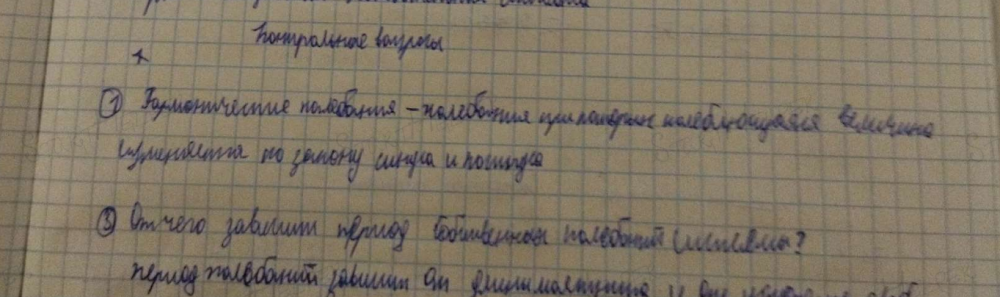 Контрольные вопросы
① Гармонические колебания – колебания при которых колеблющаяся величина
изменяется по закону синуса и косинуса
③ От чего зависит период собственных колебаний системы?
период колебаний зависит от и от